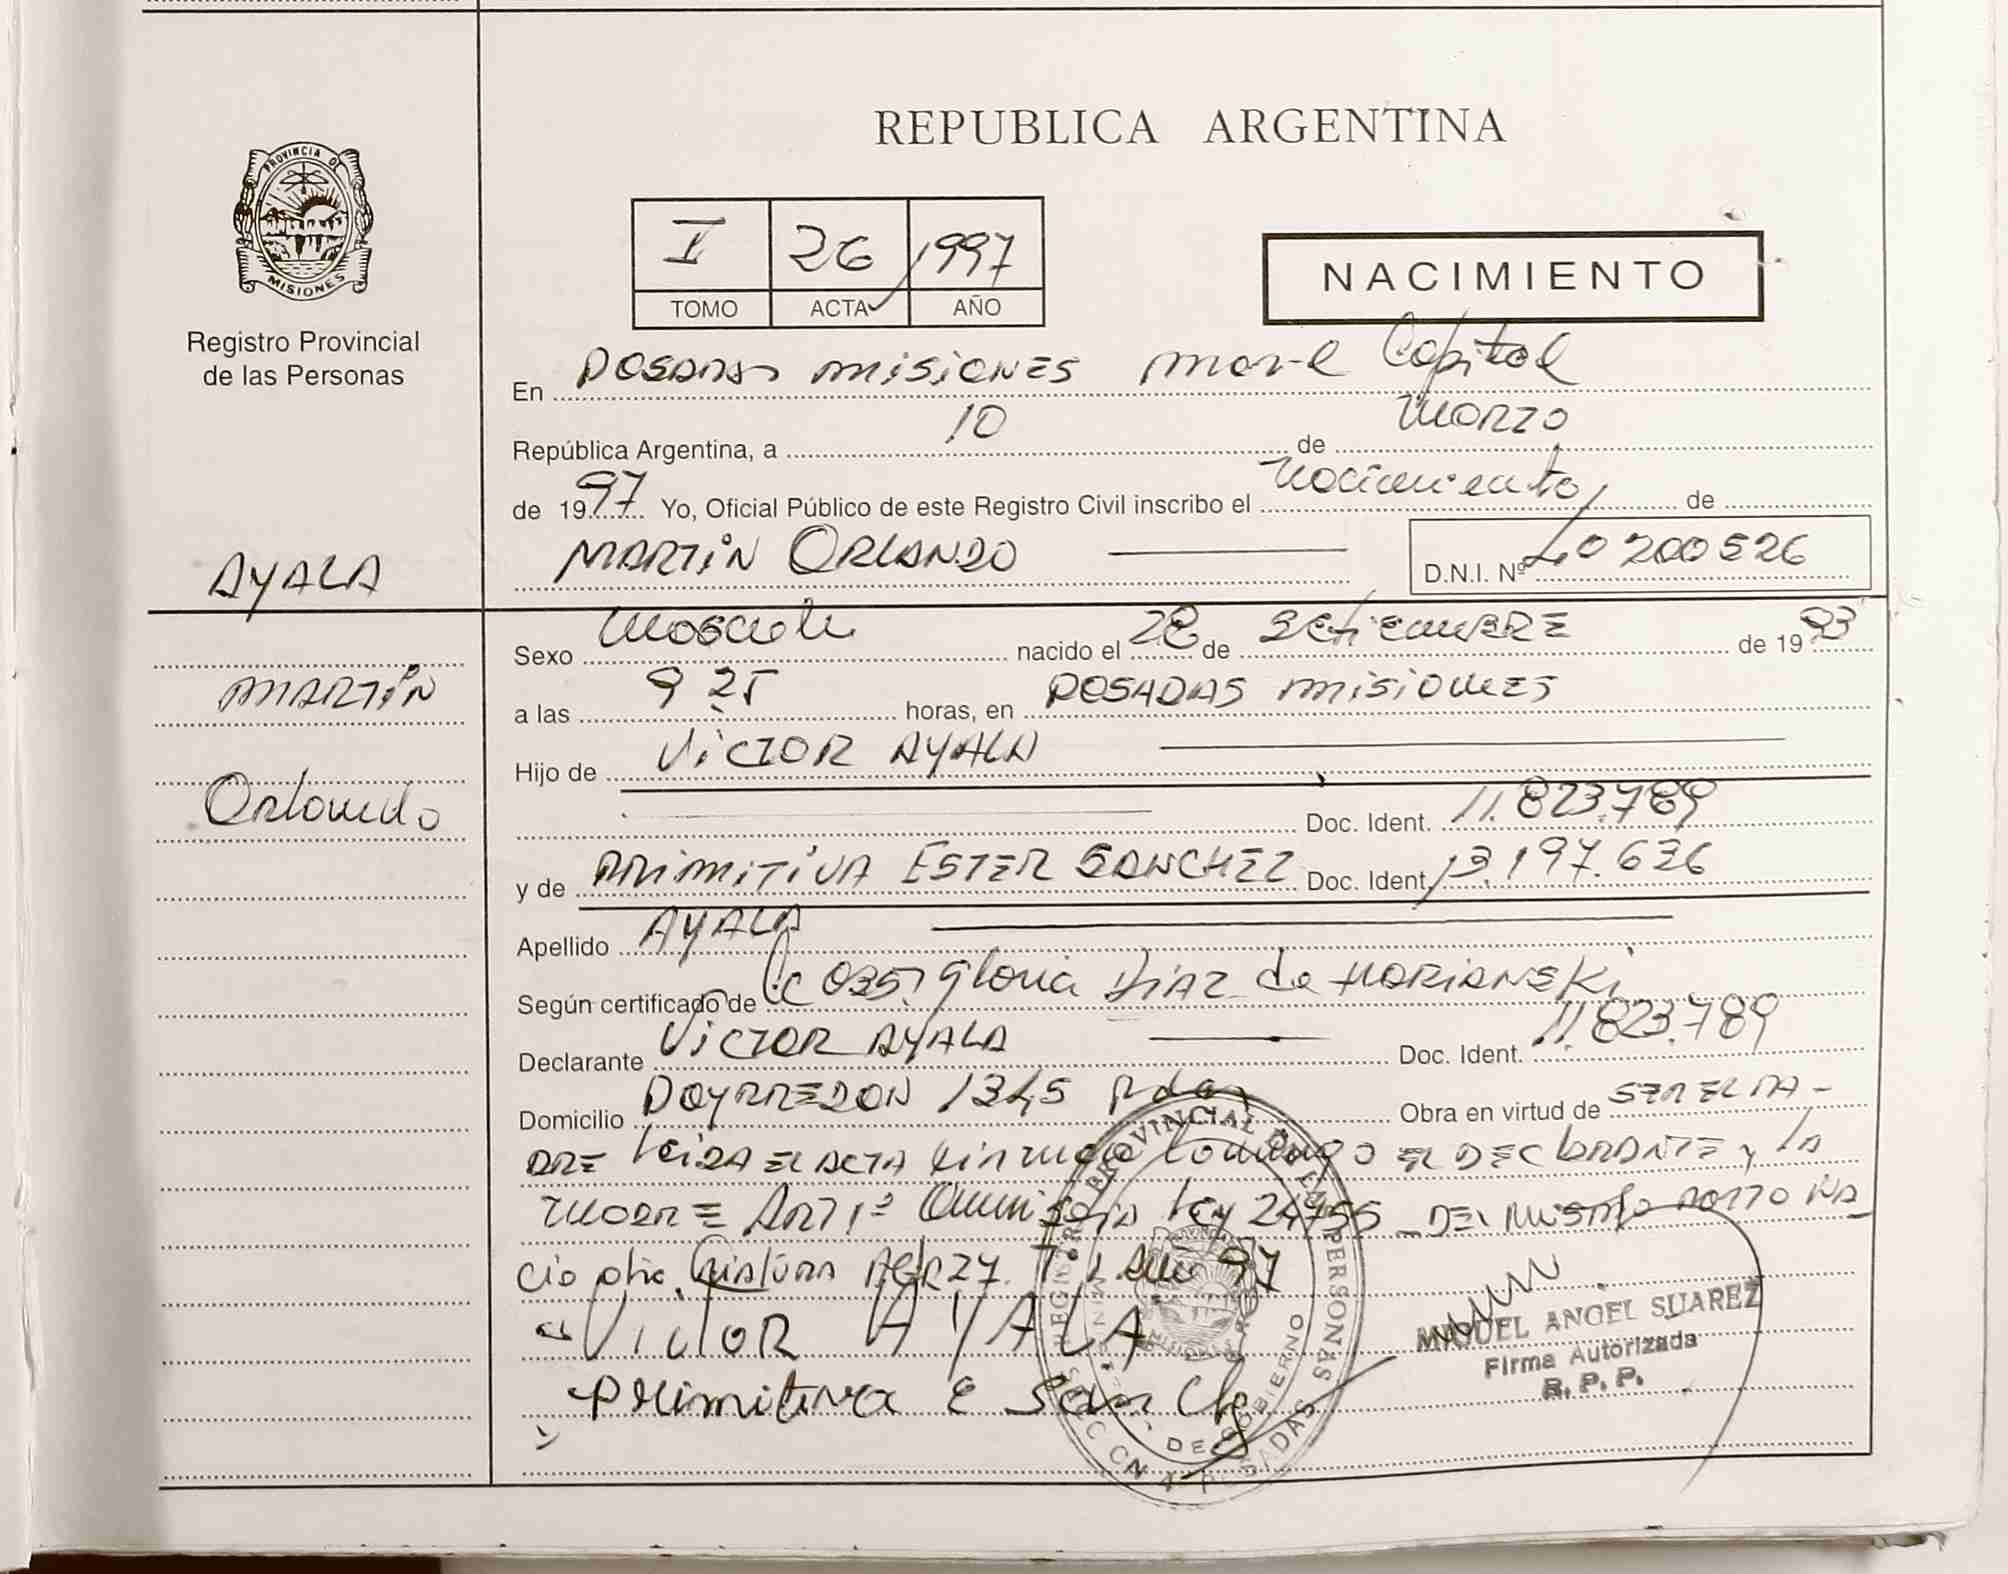 REPUBLICA ARGENTINA
PROVINCIA DE
MISIONES
Registro Provincial
de las Personas
I 26 1997
TOMO ACTA AÑO
NACIMIENTO
En POSADAS MISIONES Capital
República Argentina, a 10 de Marzo
de 1997 Yo, Oficial Público de este Registro Civil inscribo el Nacimiento de
MARTIN ORLANDO D.N.I. Nº 40 200 526
AYALA
MARTIN
Orlando
Sexo Masculi nacido el 28 de SETIEMBRE de 1993
a las 9 25 horas, en POSADAS MISIONES
Hijo de VICTOR AYALA
Doc. Ident. 11.823.789
y de PRIMITIVA ESTER SANCHEZ Doc. Ident. 13.197.636
Apellido AYALA
Según certificado de Gloria DIAZ de
Declarante VICTOR AYALA Doc. Ident. 11.823.789
Domicilio 1345 Pdas Obra en virtud de SER EL PA-
DRE LEIDA EL ACTA conmigo EL DECLARANTE y LA
MADRE ART 1º Ley 24755 DEL MISMO PARTO NA
CIO otra T I AÑO 97
VICTOR AYALA
Primitiva E Sanche
MIGUEL ANGEL SUAREZ
Firma Autorizada
R. P. P.